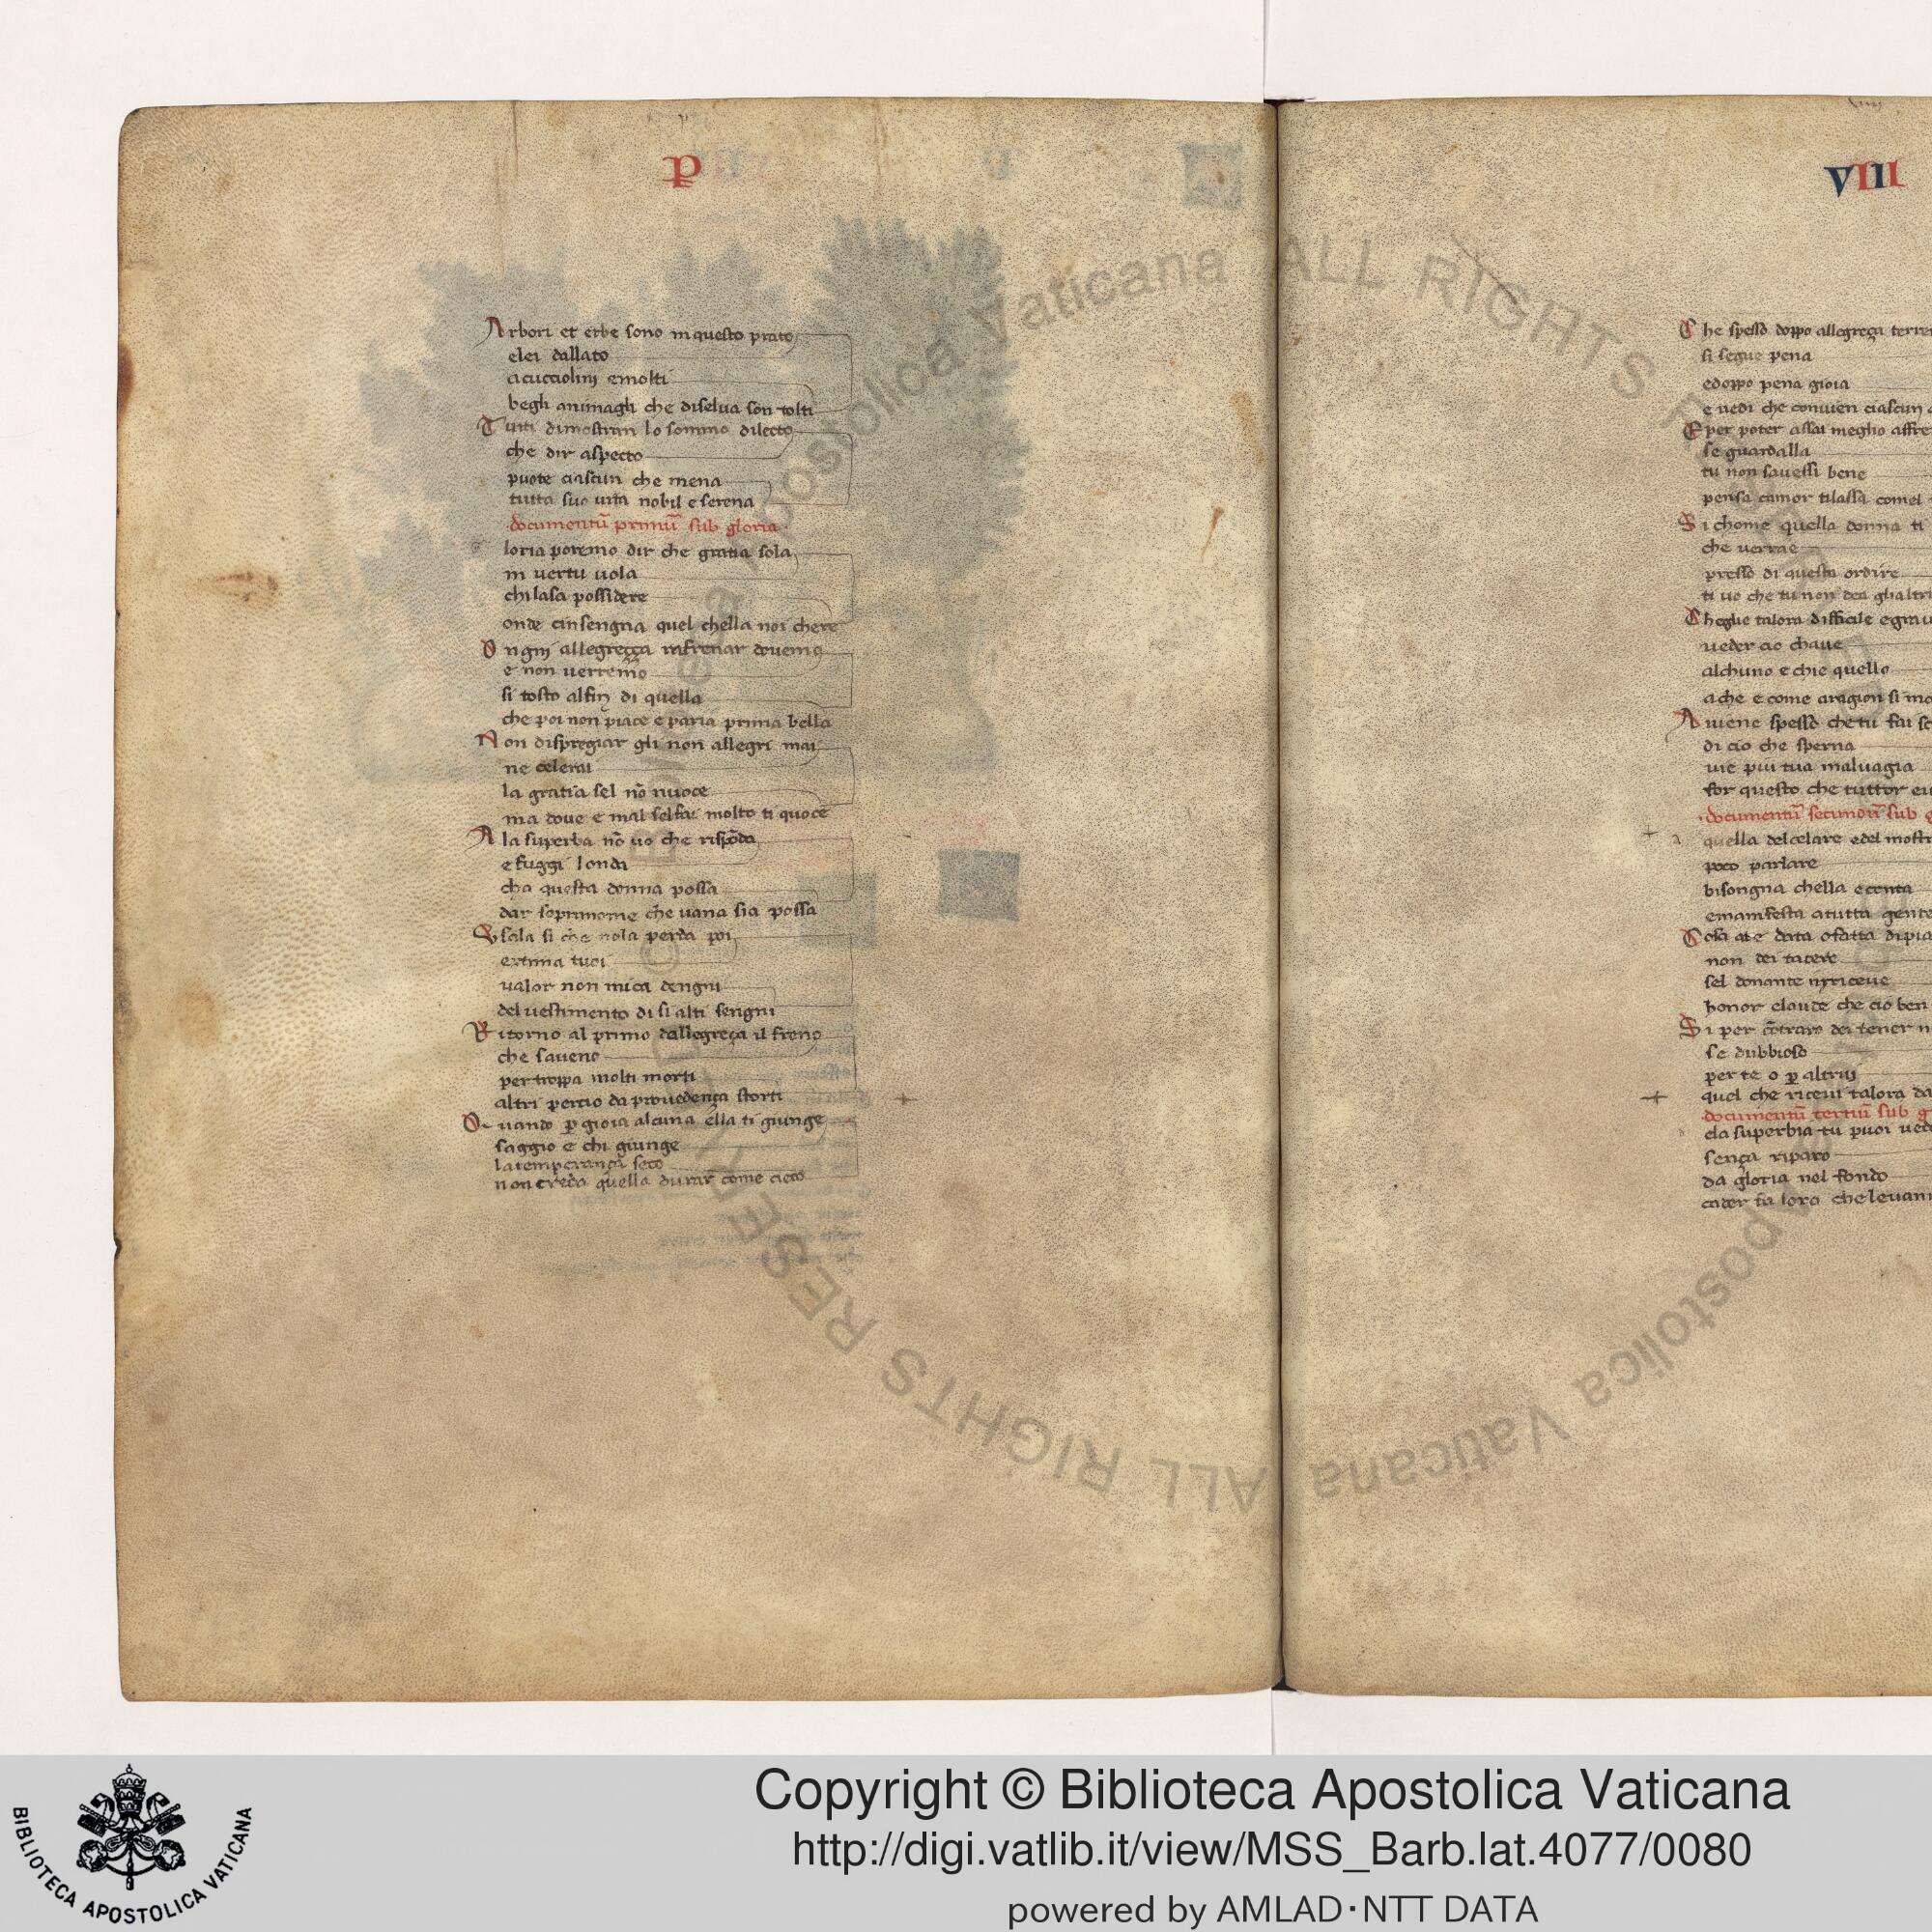 P
Arbori et erbe sono in questo prato
elei dallato
acuccolinj emolti
begli animagli che diselua son tolti
Tutti dimostran lo sommo dilecto
che dir aspecto
puote ciascun che mena
tutta suo uita nobil e serena
documentū primū sub gloria
loria poremo dir che gratia sola
in uertu uola
chi lasa possidere
onde cinsengna quel chella noi chere
Ongni allegreçça rafrenar douemo
e non uerremo
si tosto alfin di quella
che poi non piace e paria prima bella
Non dispregiar gli non allegri mai
ne celerai
la gratia sel nō nuoce
ma doue e mal selfai molto ti quoce
Ala superba nō uo che rispōda
e fuggi londa
cha questa donna possa
dar sopranome che uana sia possa
Usala si che nola perda poi
e
ualor non mica dengni
del uestimento di si alti sengni
Ritorno al primo dallegreça il freno
che saueno
per troppa molti morti
altri percio da prouedença storti
Quando p gioia alcuna ella ti giunge
saggio e chi giunge
la temperança seco
non creda quella durar come cieco
VIIII
Che spesso doppo allegreça
si segue pena
edoppo pena gioia
e uedi che conuien ciascun
E per poter assai meglio
se guardalla
tu non sauessi bene
pensa camor tilassa comel
Sichome quella donna ti
che uerrae
presso di questa ordire
ti uo che tu non dea
Cheglie talora difficile
ueder cio chaue
alchuno e chie quello
ache e come aragion si
Auiene spesso che tu fai
di cio che sperna
uie piu tua maluagia
for questo che tuttor
documentū secundū sub
quella delcelare edel
poco parlare
bisongna chella econta
emanifesta atutta gente
Cosa ate data ofatta
non dei tacere
sel donante
honor elaude che cio ben
Si per cōtraro dei tener
se dubbioso
per te o p altruj
quel che riceui talora
documentū tertiū sub
ela superbia tu puoi
sença riparo
da gloria nel fondo
cader fa loro che
Copyright © Biblioteca Apostolica Vaticana
http://digi.vatlib.it/view/MSS_Barb.lat.4077/0080
powered by AMLAD·NTT DATA
BIBLIOTECA APOSTOLICA VATICANA